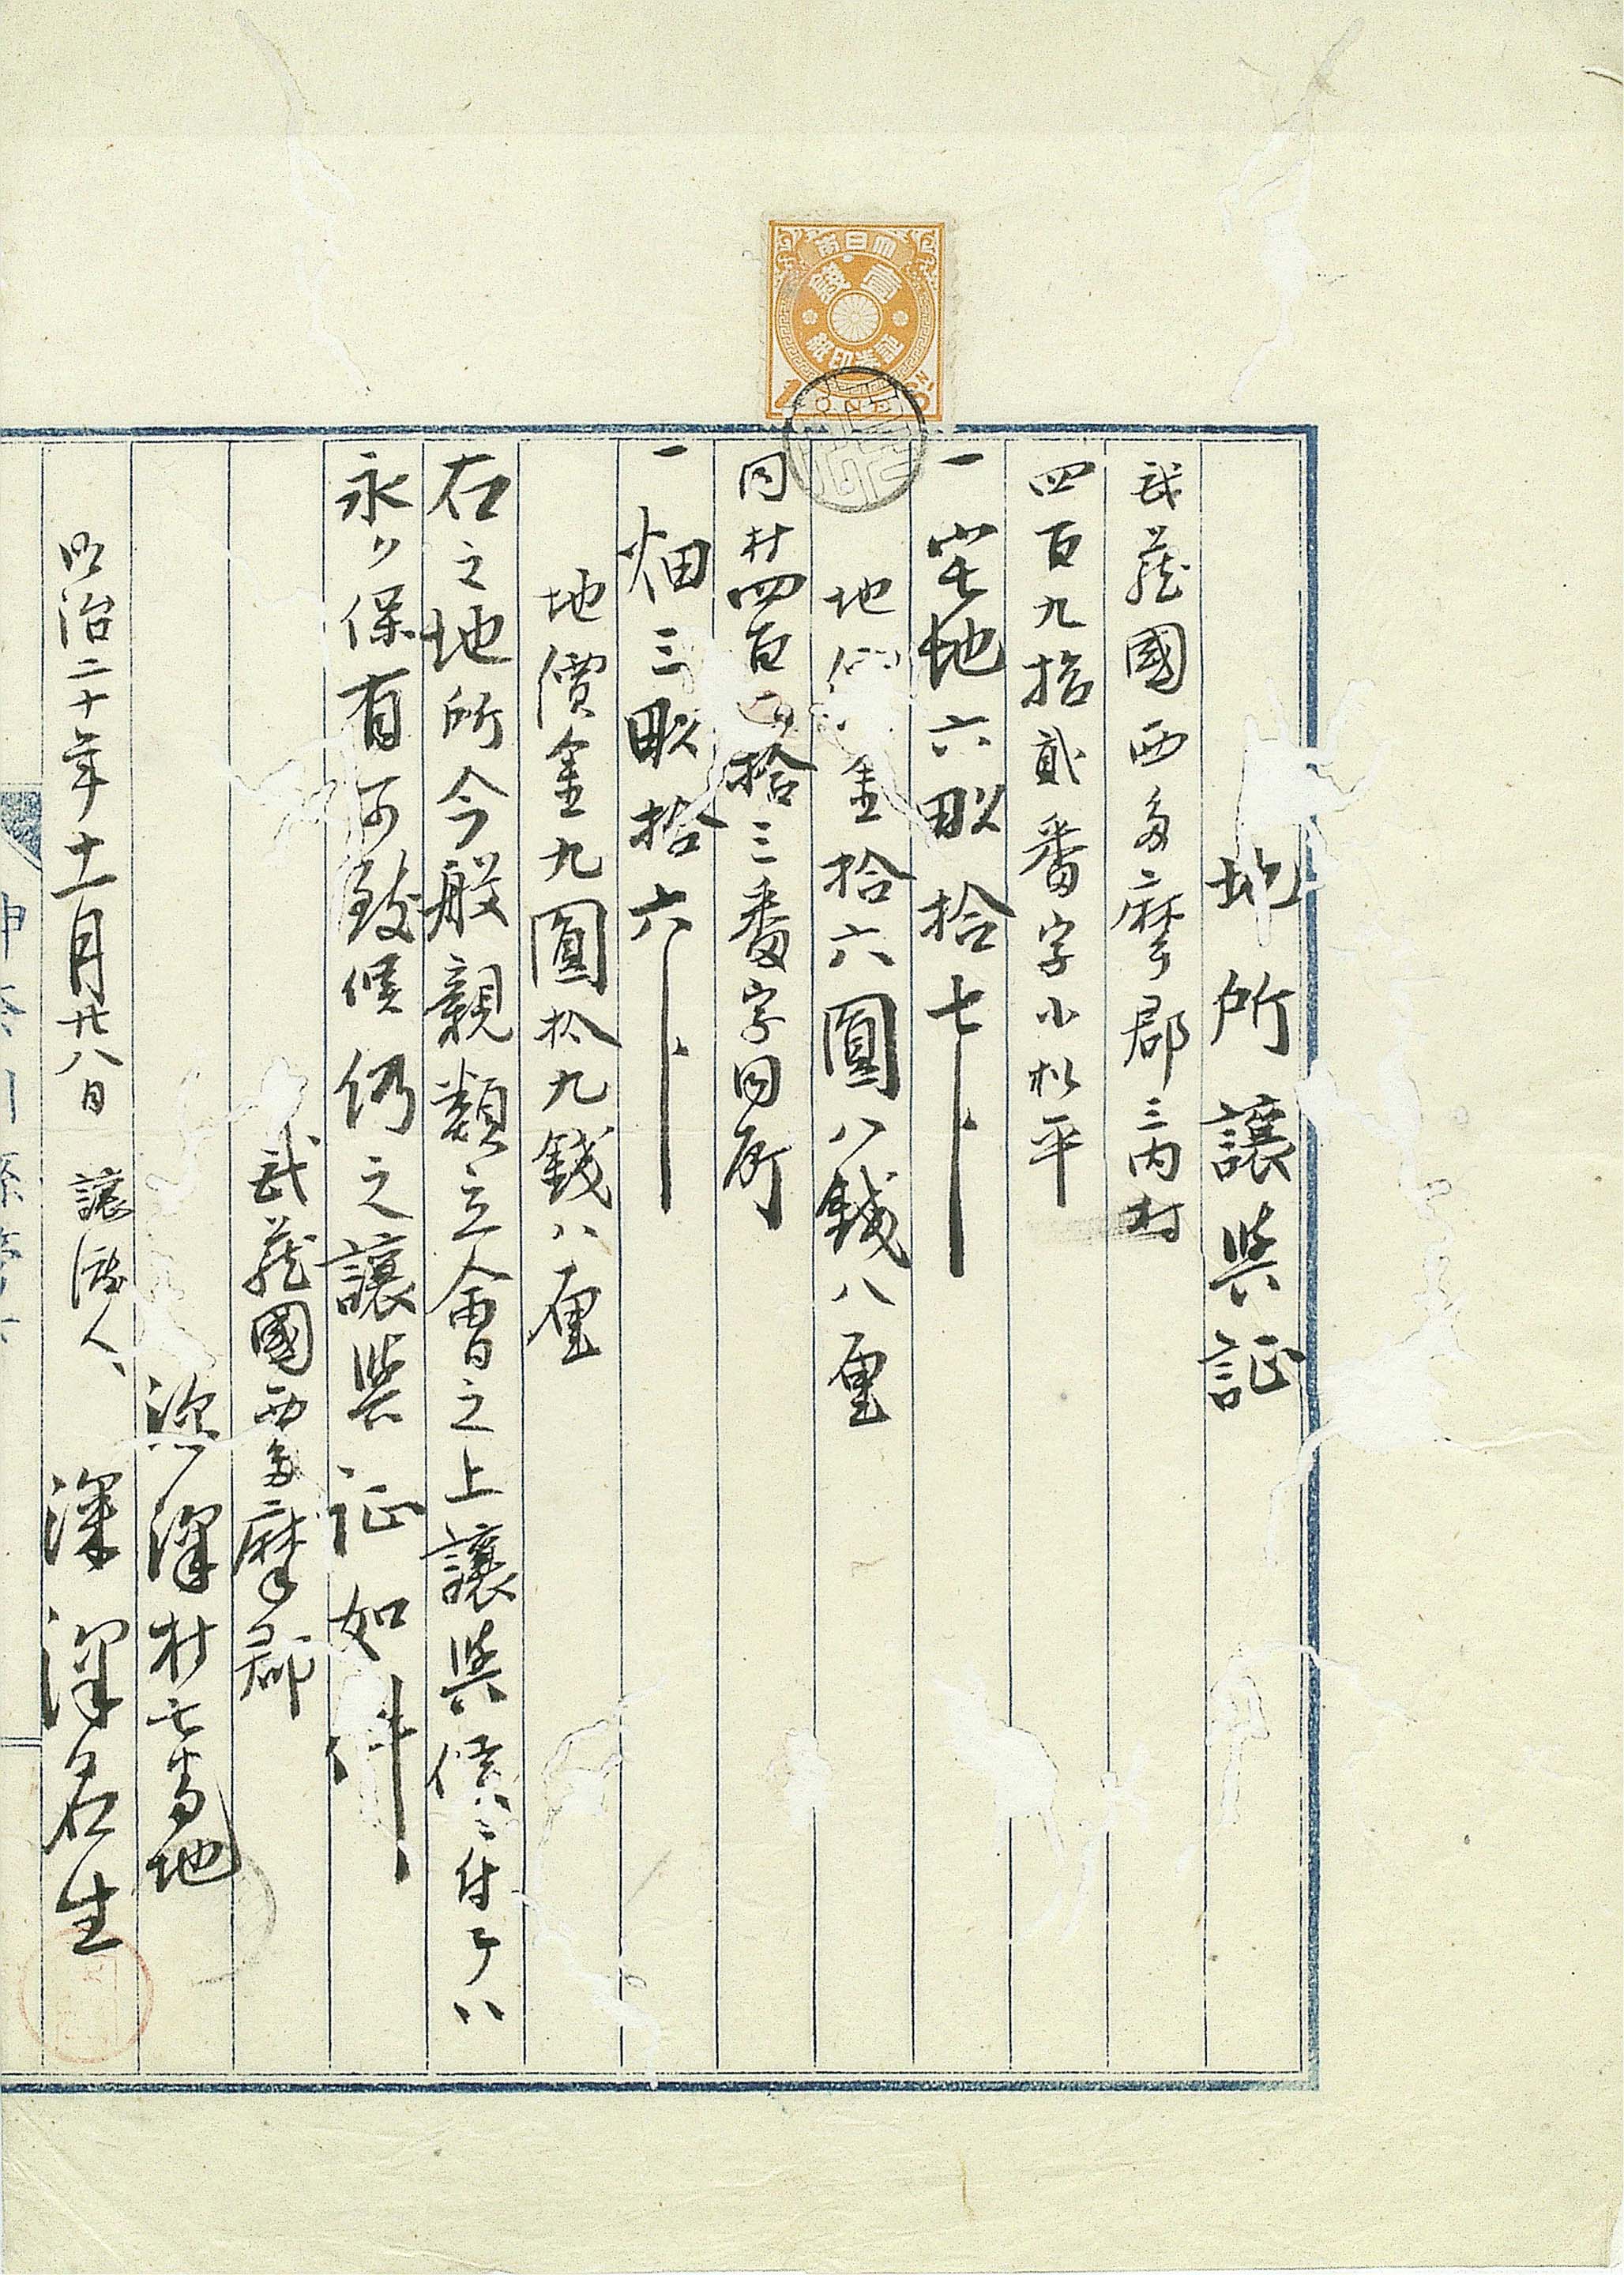 大日本帝國
壹錢
証券印紙
地所讓與証
武藏國西多摩郡三内村
四百九拾貳番字小松平
一宅地六畝拾七
地價金拾六圓八錢八厘
同村四百 拾三番字同所
一畑三畝拾六
地價金九圓拾九錢八厘
右之地所今般親類立會之上讓與候ニ付テハ
永ク保有可致候仍之讓與証如件
武藏國西多摩郡
深澤村七番地
明治二十年十一月廿八日 讓渡人 深澤名生